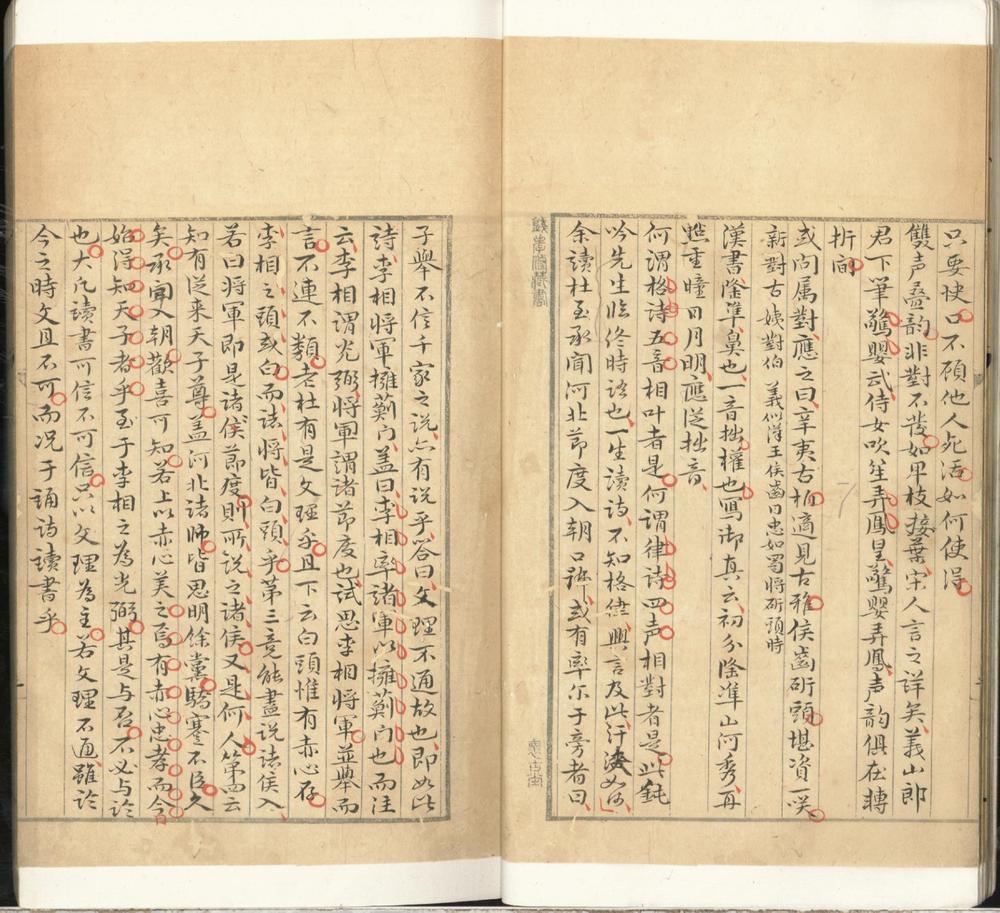 只要快口不顧他人死活如何使得
雙声叠韵非對不發如甲枝接葉宋人言之詳矣義山郎
君下筆驚嬰武侍女吹笙弄鳳皇驚嬰弄鳳声韵俱在轉
折间
或问属對應之曰辛夷古柏適見古雅侯齒斫頭堪資一咲
新對古姨對伯義似洋王侯齒曰忠如蜀將斫頭時
漢書隆準鼻也一音拙權也寫御真云初分隆準山河秀再
㸃重瞳日月明應從拙音
何謂格诗五音相叶者是何謂律诗四声相對者是此鈍
吟先生临终時語也一生讀诗不知格律興言及此汗决如何
余讀杜至承聞河北节度入朝口號或有率尔于旁者曰
子舉不信千家之说亦有説乎答曰文理不通故也即如此
詩李相將軍擁薊门盖曰李相率諸軍以擁薊门也而注
云李相謂光弼將軍謂諸节度也試思李相將軍並舉而
言不連不類老杜有是文理乎且下云白頭惟有赤心存
李相之頭或白而諸將皆白頭乎第三竞能盡说諸侯入
若曰將軍即是诸侯节度則所说之诸侯又是何人第四云
知有従来天子尊盖河北诸師皆思明餘黨驕蹇不臣久
矣承聞入朝歡喜可知若上以赤心美之焉有赤心忠孝而今日
始得知天子者乎至于李相之為光弼其是与否不必与論
也大凡读書可信不可信只以文理為主若文理不通雖於
今之時文且不可而况于誦诗讀書乎